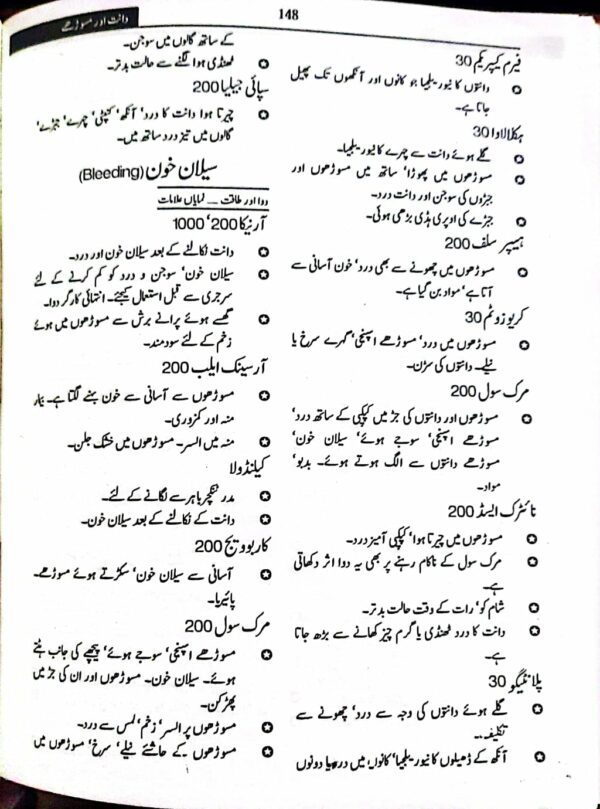 148
دانت اور مسوڑھے
فیرم پیکریکم 30
✪ دانتوں کا نیوریلجیا جو کانوں اور آنکھوں تک پھیل
جاتا ہے۔
ہیکلالاوا 30
✪ گلے ہوئے دانت سے چہرے کا نیوریلجیا۔
✪ مسوڑھوں میں پھوڑا، ساتھ میں مسوڑھوں اور
جبڑوں کی سوجن اور دانت درد۔
✪ جبڑے کی اوپری ہڈی بڑھی ہوئی۔
ہیپر سلف 200
✪ مسوڑھوں میں چھونے سے بھی درد، خون آسانی سے
آتا ہے، مواد بن گیا ہے۔
کریوزوٹم 30
✪ مسوڑھوں میں درد، مسوڑھے اسپنجی، گہرے سرخ یا
نیلے۔ دانتوں کی سڑن۔
مرک سول 200
✪ مسوڑھوں اور دانتوں کی جڑ میں کپکپی کے ساتھ درد،
مسوڑھے اسپنجی، سوجے ہوئے، سیلان خون،
مسوڑھے دانتوں سے الگ ہوتے ہوئے۔ بدبو،
مواد۔
نائٹرک ایسڈ 200
✪ مسوڑھوں میں چیرتا ہوا، کپکپی آمیز درد۔
✪ مرک سول کے ناکام رہنے پر بھی یہ دوا اثر دکھاتی
ہے۔
✪ شام کو، رات کے وقت حالت بدتر۔
✪ دانت کا درد ٹھنڈی یا گرم چیز کھانے سے بڑھ جاتا
ہے۔
پلانٹیگو 30
✪ گلے ہوئے دانتوں کی وجہ سے درد، چھونے سے
تکلیف۔
✪ آنکھ کے ڈھیلوں کا نیوریلجیا، کانوں میں درد یا دونوں
کے ساتھ گالوں میں سوجن۔
✪ ٹھنڈی ہوا لگنے سے حالت بدتر۔
سپائی جیلیا 200
✪ چیرتا ہوا دانت کا درد، آنکھ، کنپٹی، چہرے، جبڑے،
گالوں میں تیز درد ساتھ میں۔
سیلان خون (Bleeding)
دوا اور طاقت ــ نمایاں علامات
آرنیکا 200، 1000
✪ دانت نکالنے کے بعد سیلان خون اور درد۔
✪ سیلان خون، سوجن و درد کو کم کرنے کے لئے
سرجری سے قبل استعمال کیجئے۔ انتہائی کارگر دوا۔
✪ گھسے ہوئے پرانے برش سے مسوڑھوں میں ہوئے
زخم کے لئے سودمند۔
آرسینک ایلب 200
✪ مسوڑھوں سے آسانی سے خون بہنے لگتا ہے۔ بیمار
منہ اور کمزوری۔
✪ منہ میں السر۔ مسوڑھوں میں خشک جلن۔
کیلنڈولا
✪ مدر ٹنکچر باہر سے لگانے کے لئے۔
✪ دانت کے نکالنے کے بعد سیلان خون۔
کاربوویج 200
✪ آسانی سے سیلان خون، سکڑتے ہوئے مسوڑھے۔
پائیریا۔
مرک سول 200
✪ مسوڑھے اسپنجی، سوجے ہوئے، پیچھے کی جانب ہٹے
ہوئے۔ سیلان خون۔ مسوڑھوں اور ان کی جڑ میں
پھڑکن۔
✪ مسوڑھوں پر السر، زخم، لمس سے درد۔
✪ مسوڑھوں کے حاشئے نیلے، سرخ، مسوڑھوں میں